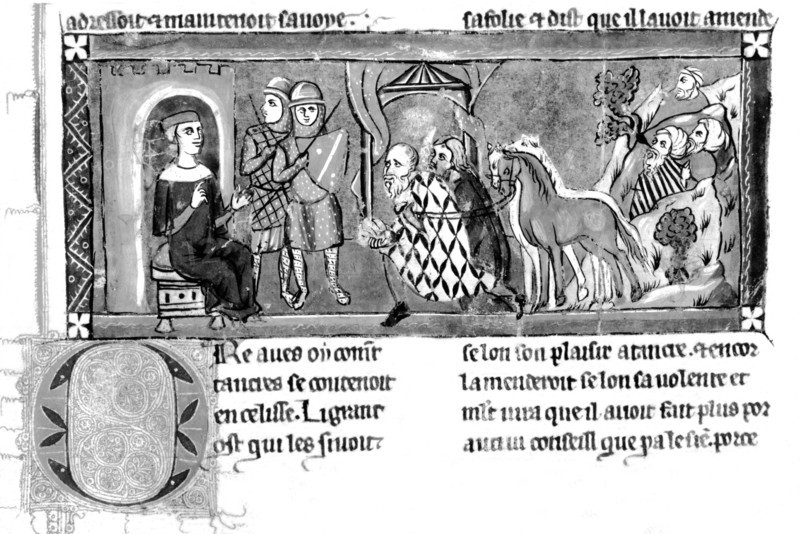 adressoit & maintenoit sa voye.
sa folie & dist que il lauoit amende
Re aues oy coment
tancres se contenoit
en celisse. Li grant
ost qui les siuoit
selon son plaisir a tancre. & encor
lamenderoit selon sa uolente et
iura que il auoit fait plus por
autrui conseill que pa le sien. porce